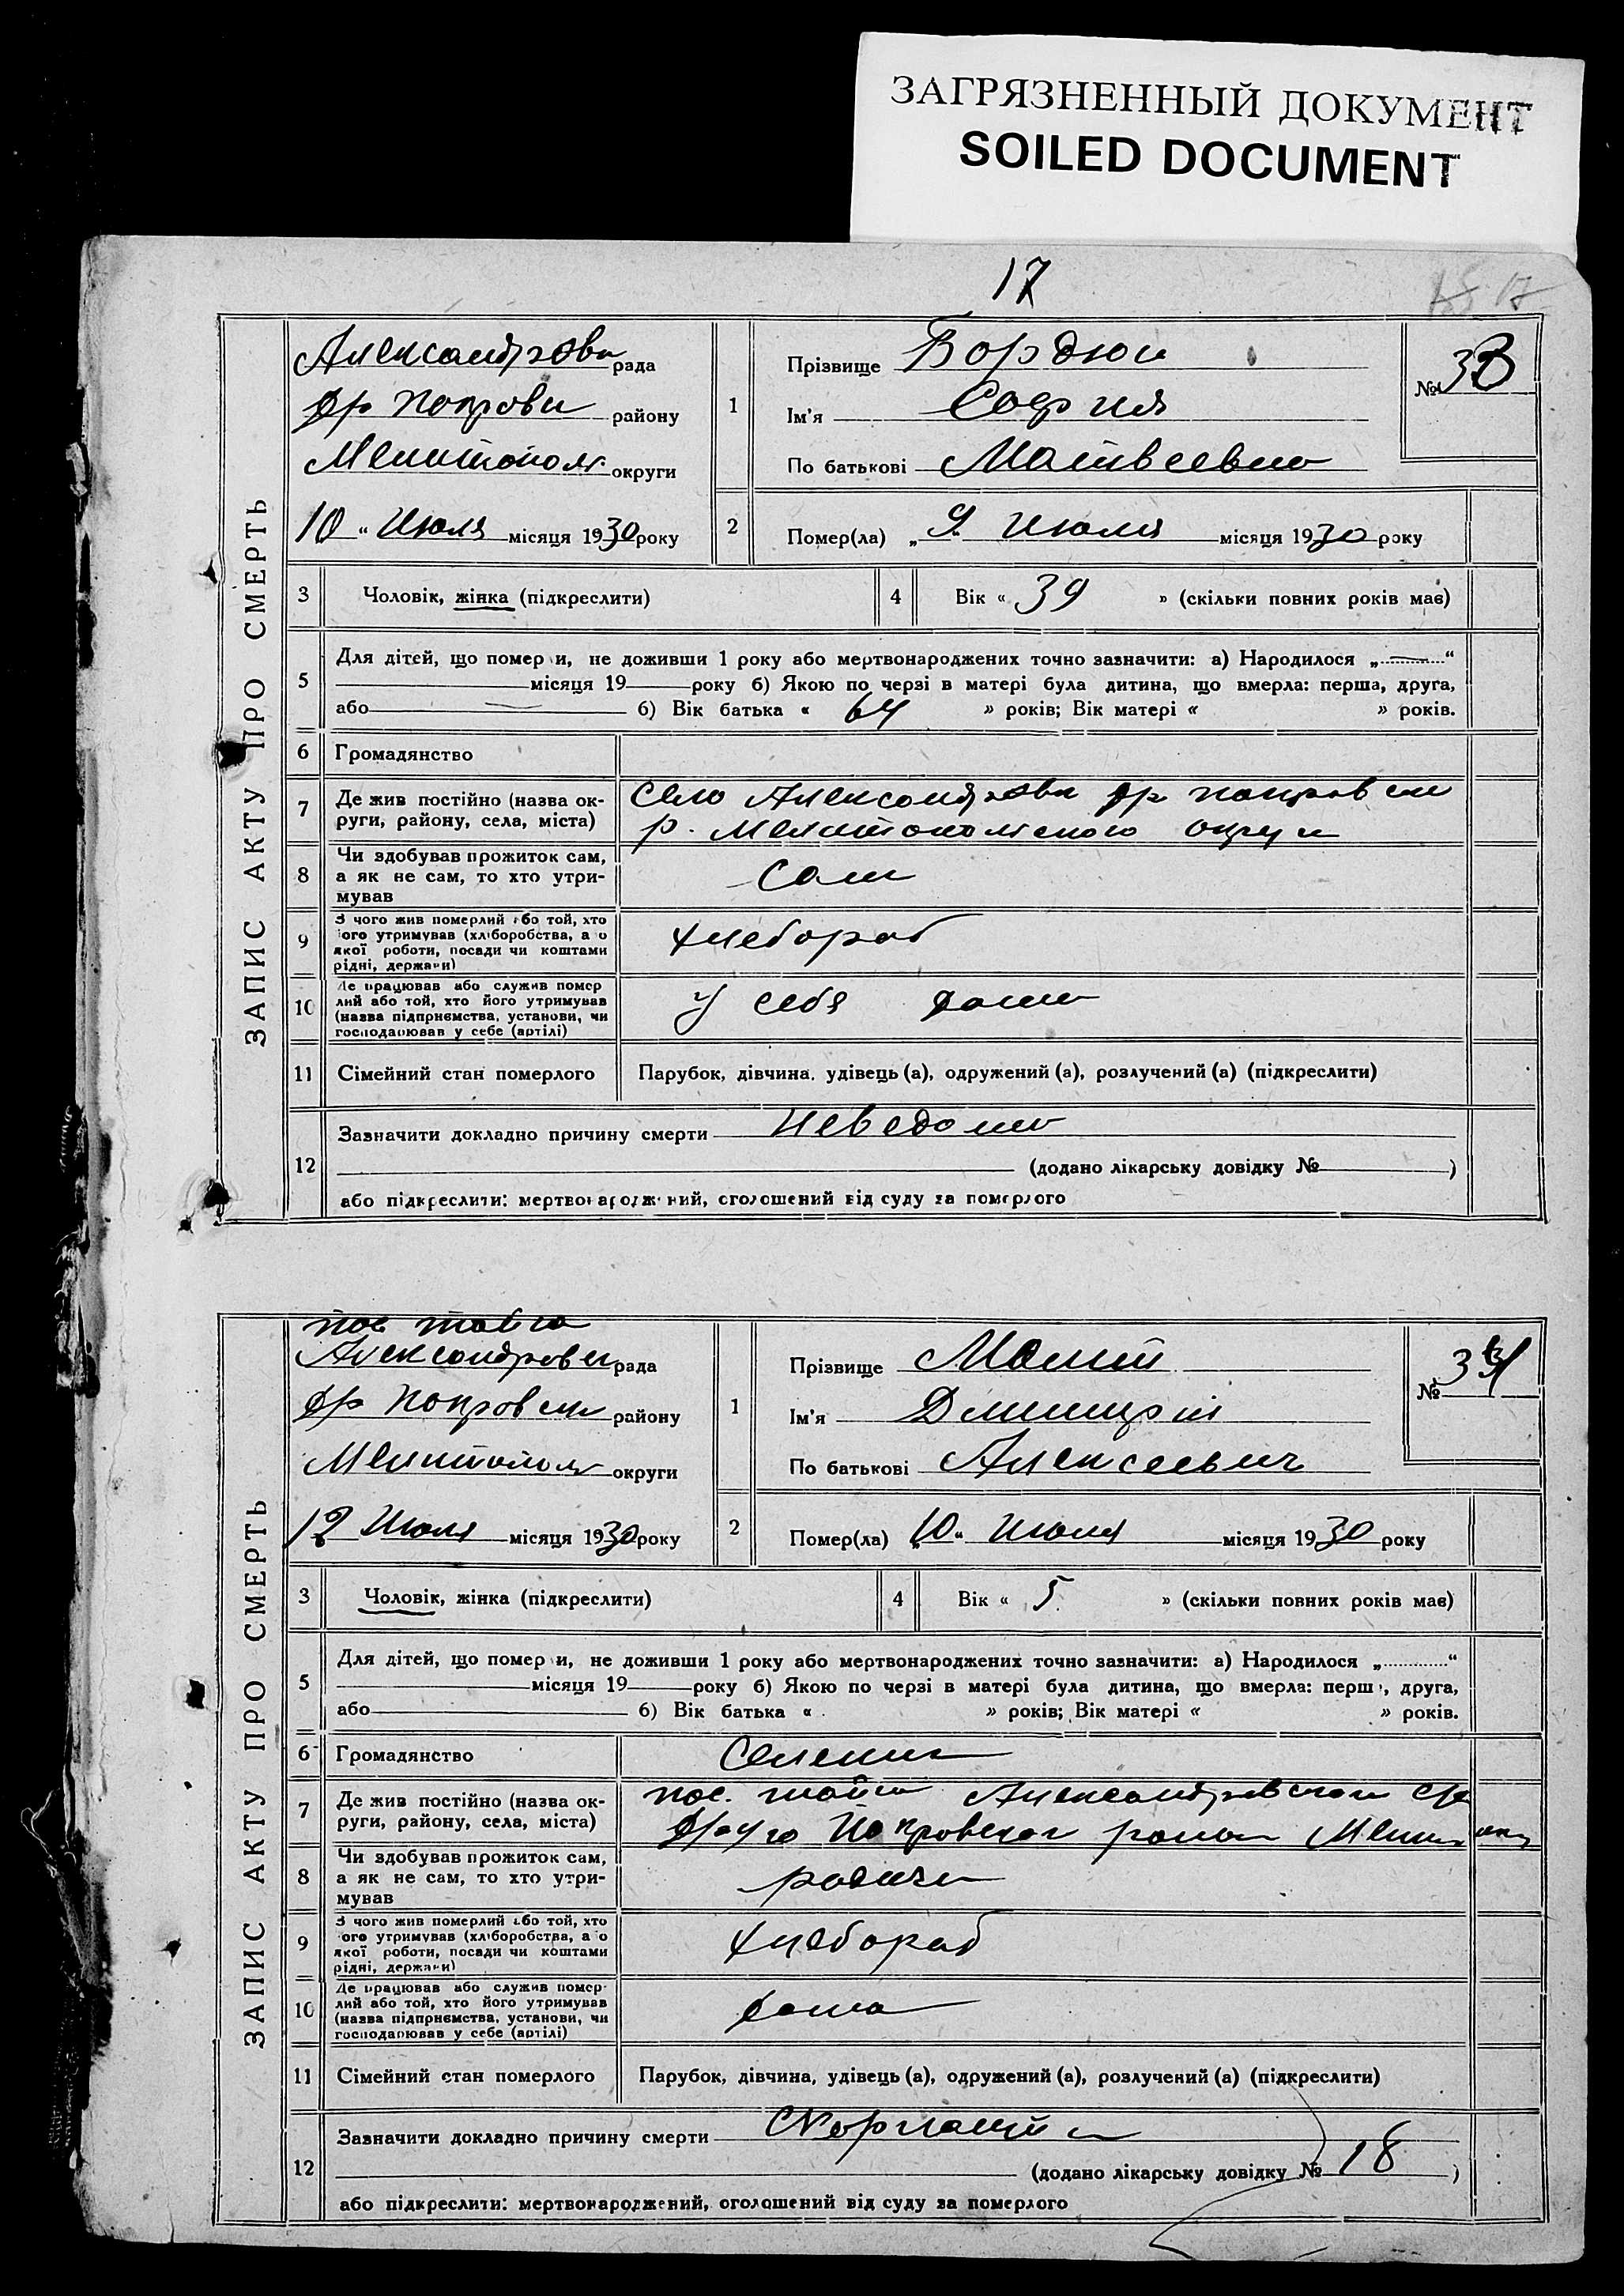 ЗАГРЯЗНЕННЫЙ ДОКУМЕНТ
SOILED DOCUMENT
17
17
ЗАПИС АКТУ ПРО СМЕРТЬ
Александровк рада
району
Мелитопол. округи
10 " Июля місяця 1930 року
1
Прізвище
Ім'я София
По батькові Матвеевно
№ 33
2
Помер(ла) „9„ Июля місяця 1930 року
3 Чоловік, жінка (підкреслити)
4 Вік « 39 » (скільки повних років має)
5
Для дітей, що померли, не доживши 1 року або мертвонароджених точно зазначити: а) Народилося „ “
місяця 19 року б) Якою по черзі в матері була дитина, що вмерла: перша, друга,
або б) Вік батька « 64 » років; Вік матері « » років.
6 Громадянство
7 Де жив постійно (назва округи, району, села, міста)
Село Александровк
р. Мелитопольского округи
8 Чи здобував прожиток сам,
а як не сам, то хто утри-
мував
Сам
9 З чого жив померлий або той, хто
його утримував (хліборобства, а о
якої роботи, посади чи коштами
рідні, держави)
хлебороб
10 Де працював або служив помер
лий або той, хто його утримував
(назва підприємства, установи, чи
господарював у себе (артілі)
У себя дома
11 Сімейний стан померлого Парубок, дівчина, удівець (а), одружений (а), розлучений (а) (підкреслити)
12
Зазначити докладно причину смерти Неведомо
(додано лікарську довідку № )
або підкреслити: мертвонароджений, оголошений від суду за померлого
ЗАПИС АКТУ ПРО СМЕРТЬ
пос
Александровк рада
Покровск району
Мелитополя округи
12 Июля місяця 1930 року
1
Прізвище
Ім'я Дмитрий
По батькові Алексеевич
№ 34
2
Помер(ла) „10„ Июля місяця 1930 року
3 Чоловік, жінка (підкреслити)
4 Вік « 5 » (скільки повних років має)
5
Для дітей, що померли, не доживши 1 року або мертвонароджених точно зазначити: а) Народилося „ “
місяця 19 року б) Якою по черзі в матері була дитина, що вмерла: перша, друга,
або б) Вік батька « » років; Вік матері « » років.
6 Громадянство
7 Де жив постійно (назва ок-
руги, району, села, міста)
пос. Александровской
Покровског район
8 Чи здобував прожиток сам,
а як не сам, то хто утри-
мував
9 З чого жив померлий або той, хто
його утримував (хліборобства, а о
якої роботи, посади чи коштами
рідні, держави)
хлебороб
10 Де працював або служив помер-
лий або той, хто його утримував
(назва підприємства, установи, чи
господарював у себе (артілі)
дома
11 Сімейний стан померлого Парубок, дівчина, удівець (а), одружений (а), розлучений (а) (підкреслити)
12
Зазначити докладно причину смерти
(додано лікарську довідку № 18 )
або підкреслити: мертвонароджений, оголошений від суду за померлого